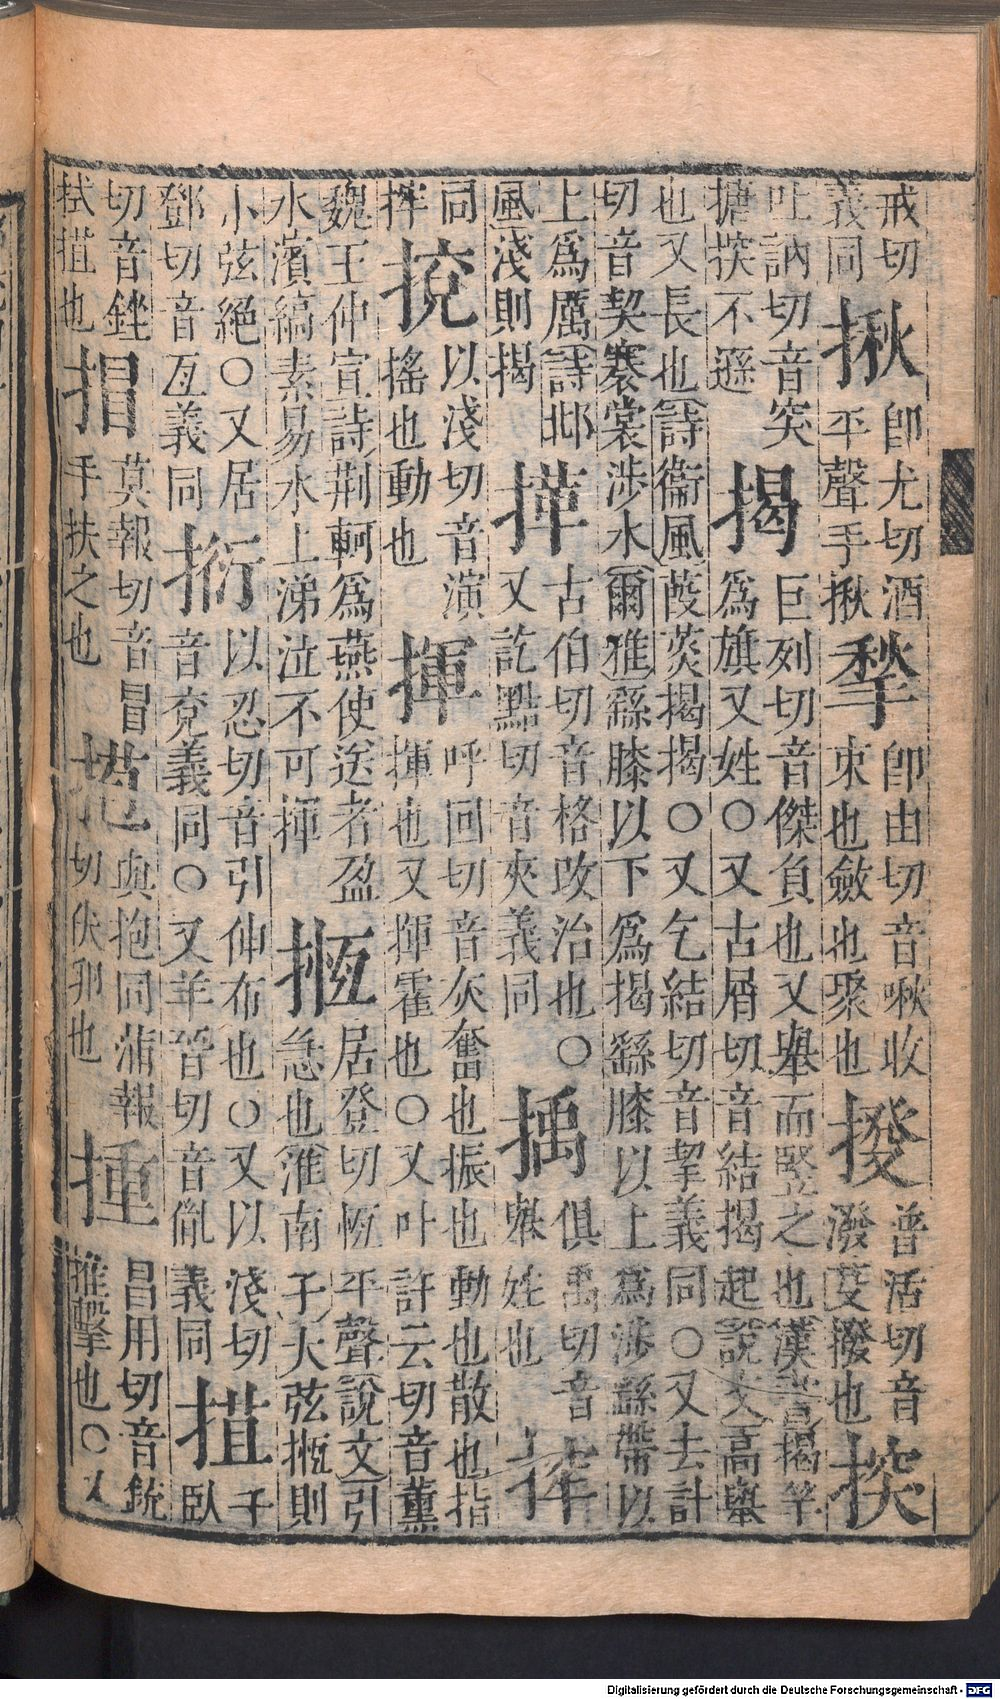 戒切義同 揪 卽尤切酒平聲手揪 揫 卽由切音啾收束也斂也聚也 撥 普活切音潑芟撥也 揬
吐訥切音突搪揬不遜 揭 巨列切音傑負也又舉而竪之也漢書揭竿爲旗又姓○又古屑切音結揭起說文高舉
也又長也詩衞風葭菼揭揭○又乞結切音挈義同○又去計切音契褰裳涉水爾雅繇膝以下爲揭繇膝以上爲涉繇帶以
上爲厲詩邶風淺則揭 古伯切音格改治也○又訖黠切音夾義同 俱禹切音舉姓也
同揮 以淺切音演搖也動也 揮 呼回切音灰奮也振也動也散也指揮也又揮霍也○又叶許云切音薰
魏王仲宣詩荆軻爲燕使送者盈水濱縞素易水上涕泣不可揮 揯 居登切恆平聲說文引急也淮南子大弦揯則
小弦絕○又居鄧切音亙義同 以忍切音引伸布也○又以淺切音兖義同○又羊晉切音胤義同 千臥
切音銼拭也 莫報切音冒手扶之也 與抱同蒲報切伏卵也 揰 昌用切音銃推擊也○又
Digitalisierung gefördert durch die Deutsche Forschungsgemeinschaft - DFG